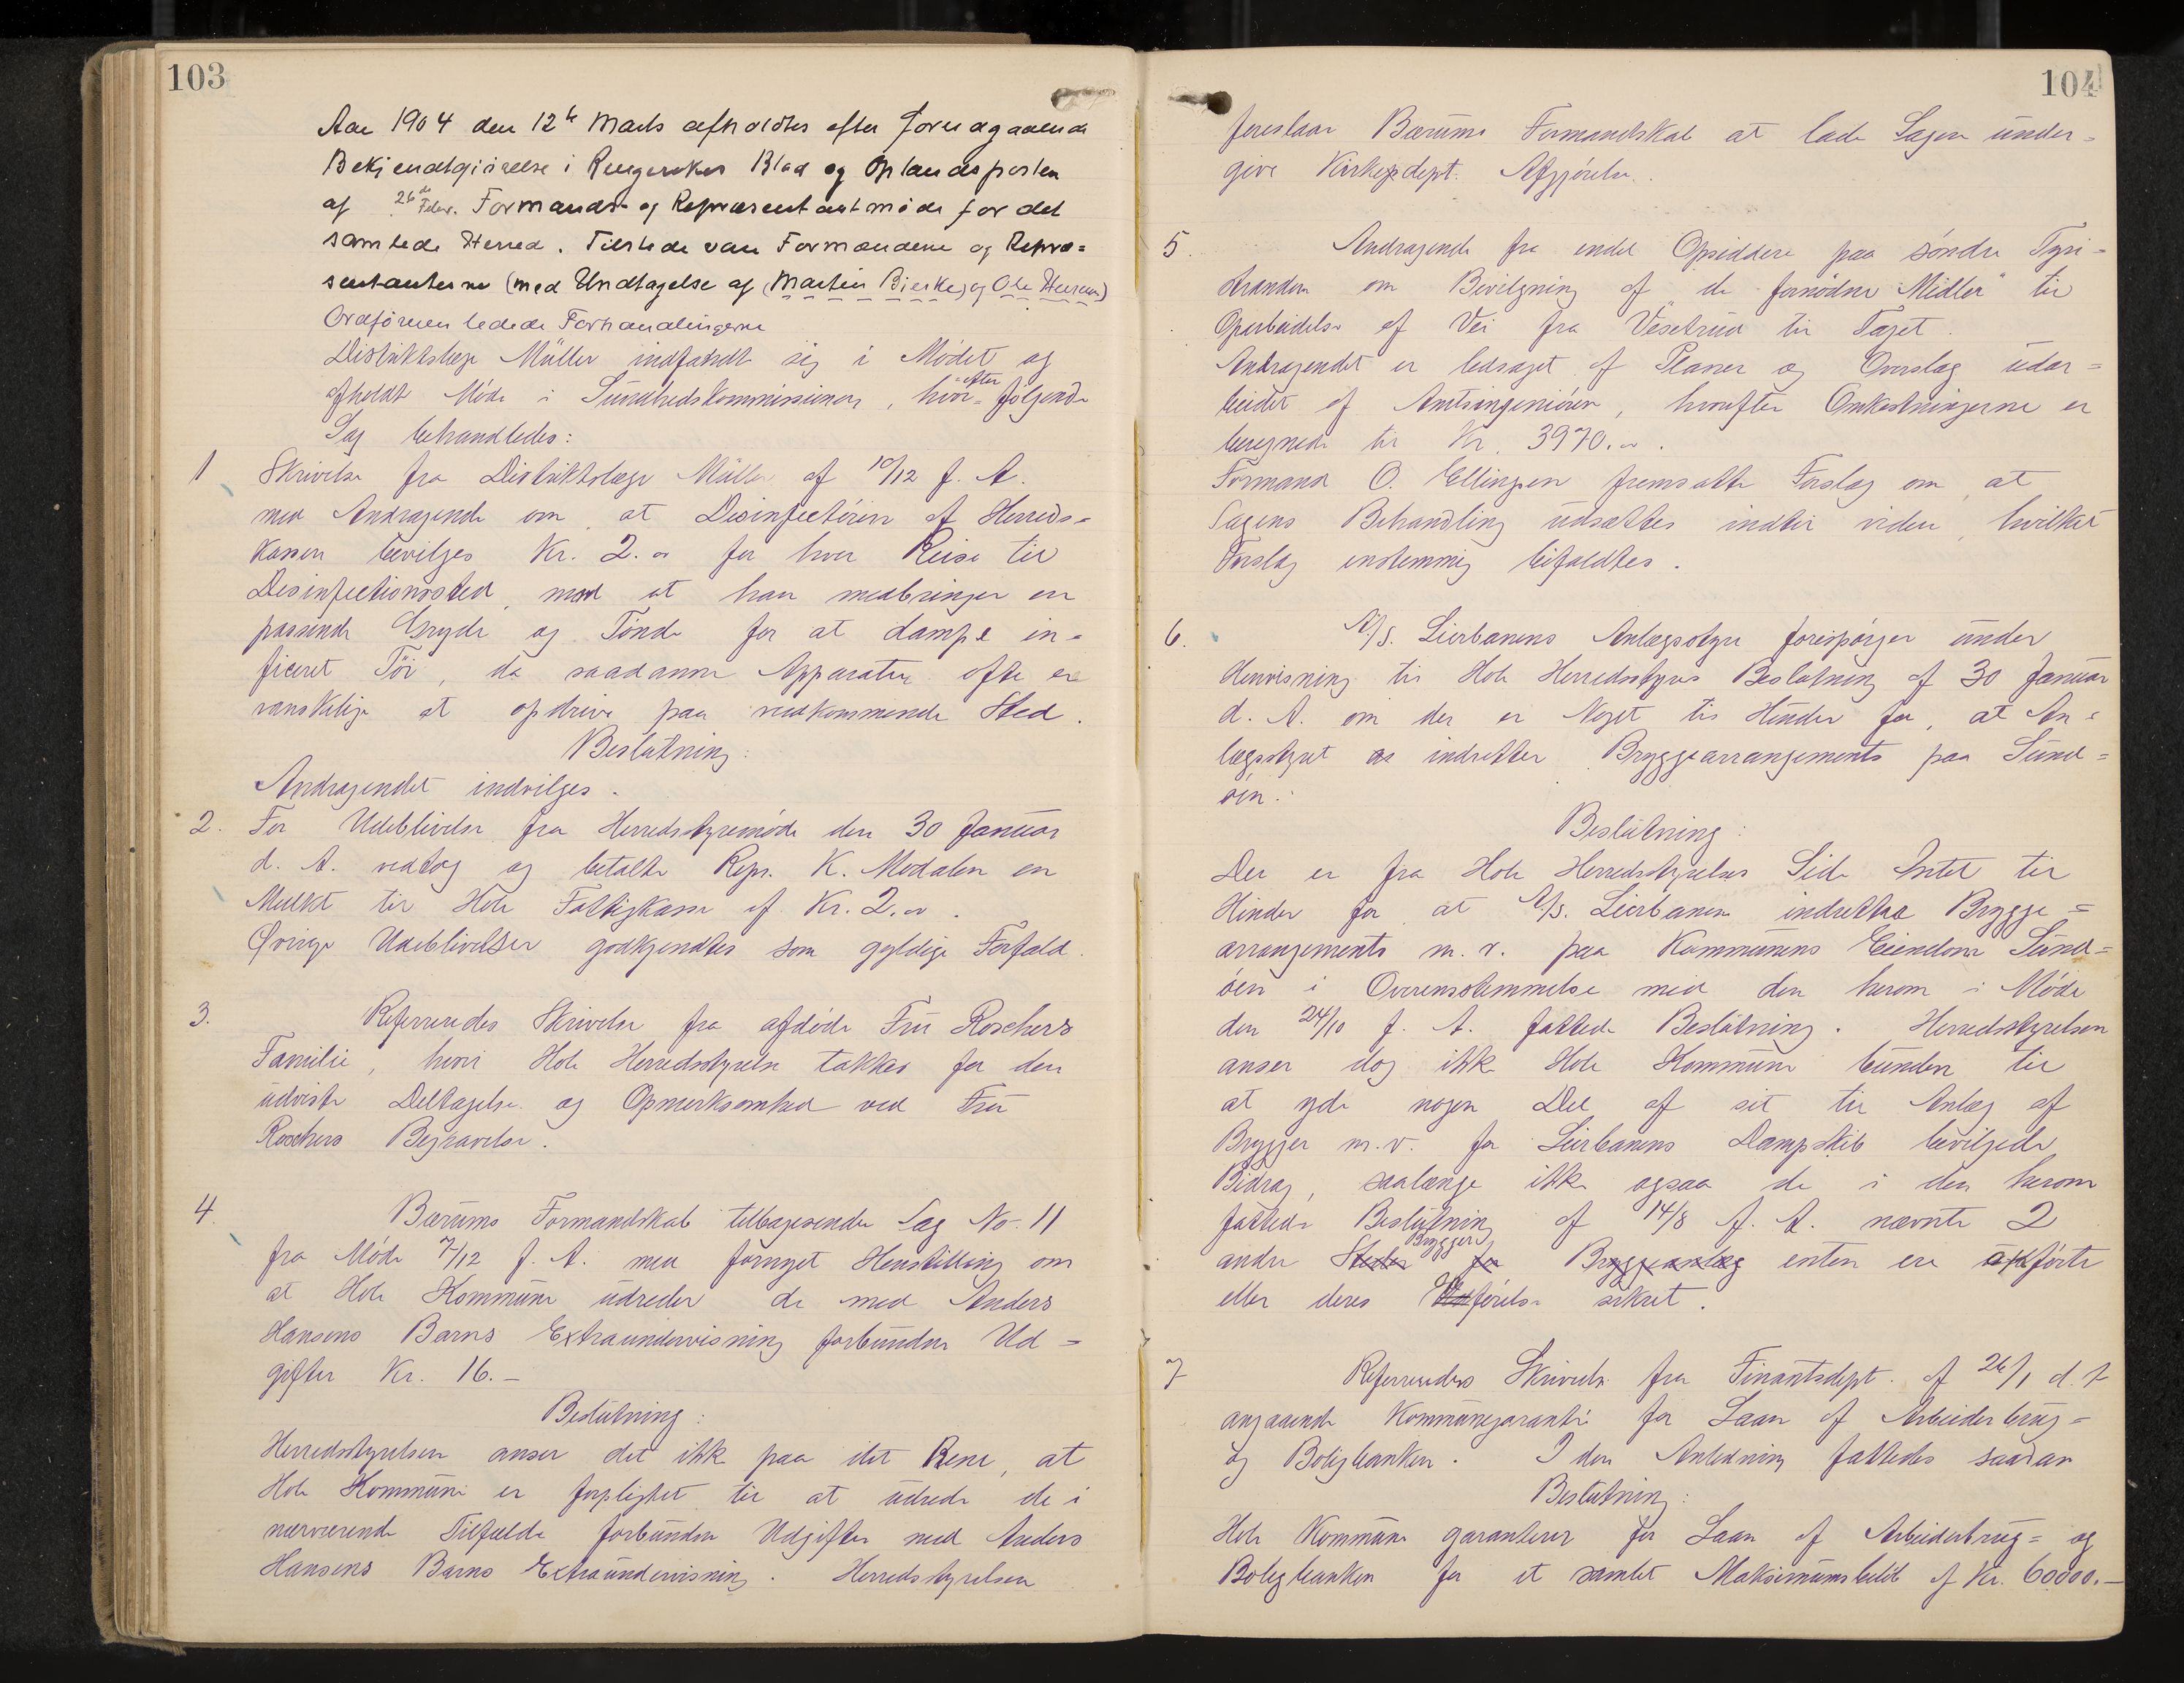 103
Aar 1904 den 12te Marts afholdtes efter forudgaaende
Bekjendtgiørelse i Ringerikes Blad og Oplandsposten
af 26de Febr. Formands- og Repræsentantmøde for det
samlede Herred. Tilstede vare Formændene og Repræ=
sentanterne (med Undtagelse af (Martin Bjerke) og Ole Heieren)
Ordføreren ledede Forhandlingerne
Distriktslæge Müller indfandt sig i Mødet og
afholdt Møde i Sundhedskommissionen, hvor=efter følgende
Sag behandledes:
1 Skrivelse fra Distriktslæge Müller af 10/12 f. A.
med Andragende om, at Desinfectøren af Herreds=
kassen bevilges Kr. 2.00 for hver Reise til
Desinfectionssted, mod at han medbringer en
passende Gryde og Tønde for at dampe in=
ficeret Tøi, da saadanne Apparater ofte er
vanskelige at opdrive paa vedkommende Sted.
Beslutning:
Andragendet indvilges.
2. For Udeblivelse fra Herredsstyremøde den 30 Januar
d. A. vedtog og betalte Repr. K. Modalen en
Mulkt til Hole Fattigkasse af Kr. 2.00.
Øvrige Udeblivelser godkjendtes som gyldige Forfald.
3. Refereredes Skrivelse fra afdøde Fru Roschers
Familie, hvori Hole Herredsstyrelse takkes for den
udviste Deltagelse og Opmerksomhed ved Fru
Roschers Begravelse.
4. Bærums Formandskab tilbagesender Sag No. 11
fra Møde 7/12 f. A. med fornyet Henstilling om
at Hole Kommune udreder de med Anders
Hansens Barns Extraundervisning forbundne Ud=
gifter Kr. 16.-
Beslutning:
Herredsstyrelsen anser det ikke paa det Rene, at
Hole Kommune er forpligtet til at udrede de i
nærværende Tilfælde forbundne Udgifter med Anders
Hansens Barns Extraundervisning. Herredsstyrelsen
104
foreslaar Bærums Formandskab at lade Sagen under=
give Kirkedept. Afgjørelse.
5. Andragende fra endel Opsiddere paa søndre Tyri=
stranden om Bevilgning af "de fornødne Midler" til
Oparbeidelse af Vei fra Vesetrud til Taget.
Andragendet er ledsaget af Planer og Overslag udar=
beidet af Amtsingeniøren, hvorefter Omkostningerne er
beregnede til Kr. 3970.00.
Formand O. Ellingsen fremsatte Forslag om, at
Sagens Behandling udsættes indtil videre, hvilket
Forslag enstemmig bifaldtes.
6. A/S. Lierbanens Anlægsstyre forespørger under
Henvisning til Hole Herredsstyres Beslutning af 30 Januar
d. A. om der er Noget til Hinder for, at An=
lægsstyret indretter Bryggearrangements paa Sund=
øen.
Beslutning:
Der er fra Hole Herredsstyrelses Side Intet til
Hinder for at A/S. Lierbanen indretter Brygge=
arrangements m.v. paa Kommunens Eiendom Sund=
øen i Overensstemmelse med den herom i Møde
den 24/10 f. A. fattede Beslutning. Herredsstyrelsen
anser dog ikke Hole Kommune bunden til
at yde nogen Del af sit til Anlæg af
Brygger m.v. for Lierbanens Dampskib bevilgede
Bidrag, saalænge ikke ogsaa de i den herom
fattede Beslutning af 14/8 f. A. nævnte 2
andre Steder for Bryggeanlæg Brygger enten ere førte
eller deres førelse sikret.
7 Refereredes Skrivelse fra Finantsdept. af 26/1 d. A
angaaende Kommunegaranti for Laan af Arbeiderbrug=
og Boligbanken. I den Anledning fattedes saadan
Beslutning:
Hole Kommune garanterer for Laan af Arbeiderbrug= og
Boligbanken for et samlet Maksimumsbeløb af Kr. 60000.-